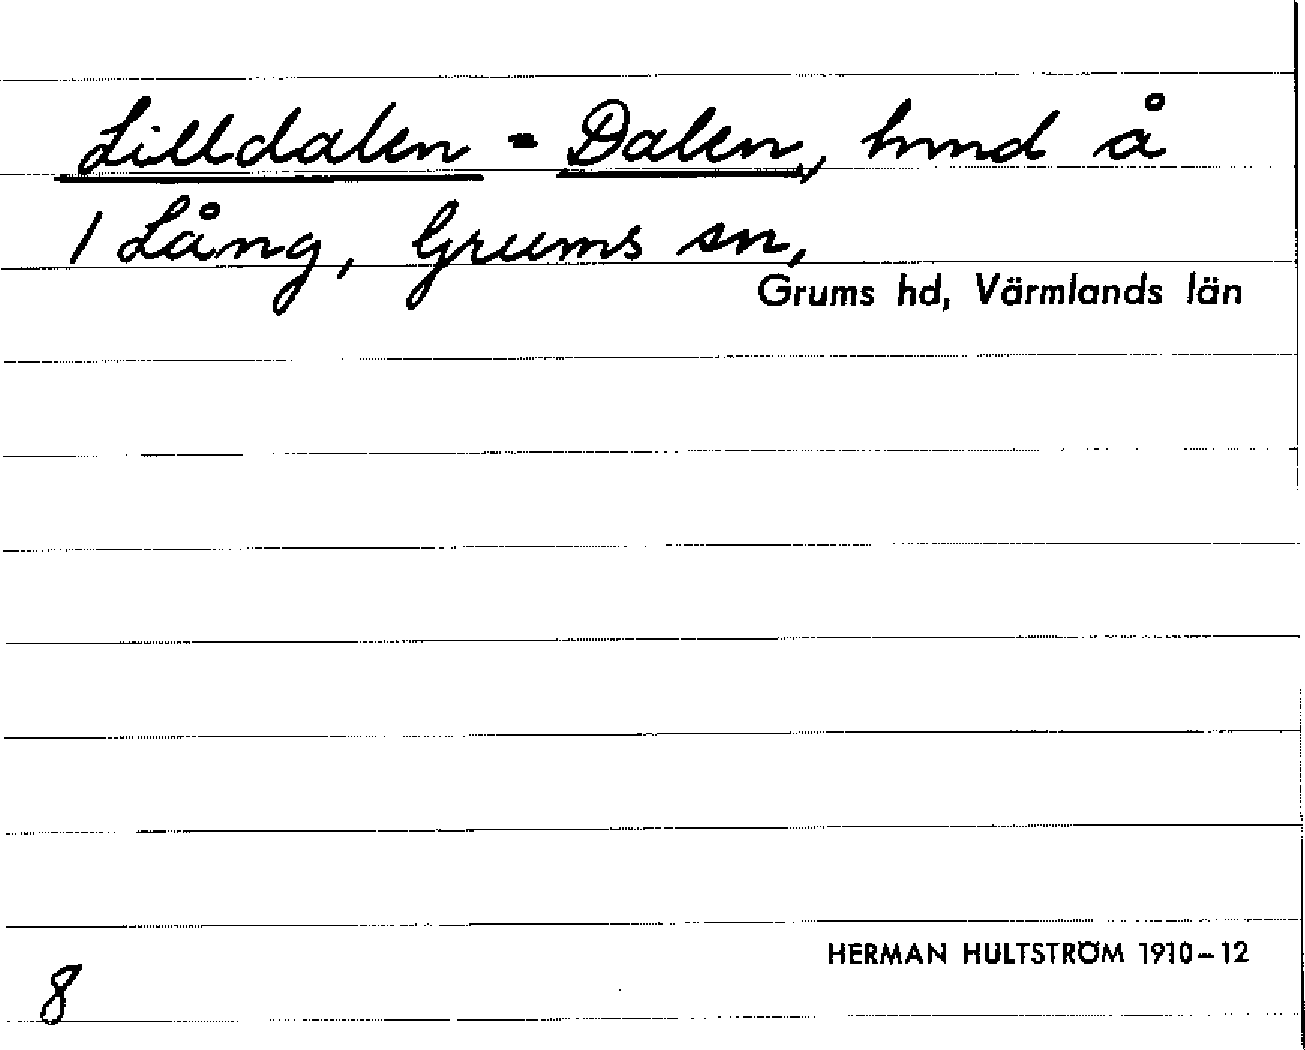 Lilldalen = Dalen, hmd å
1 Lång, Grums sn,
Grums hd, Värmlands län
HERMAN HULTSTRÖM 1910-12
8